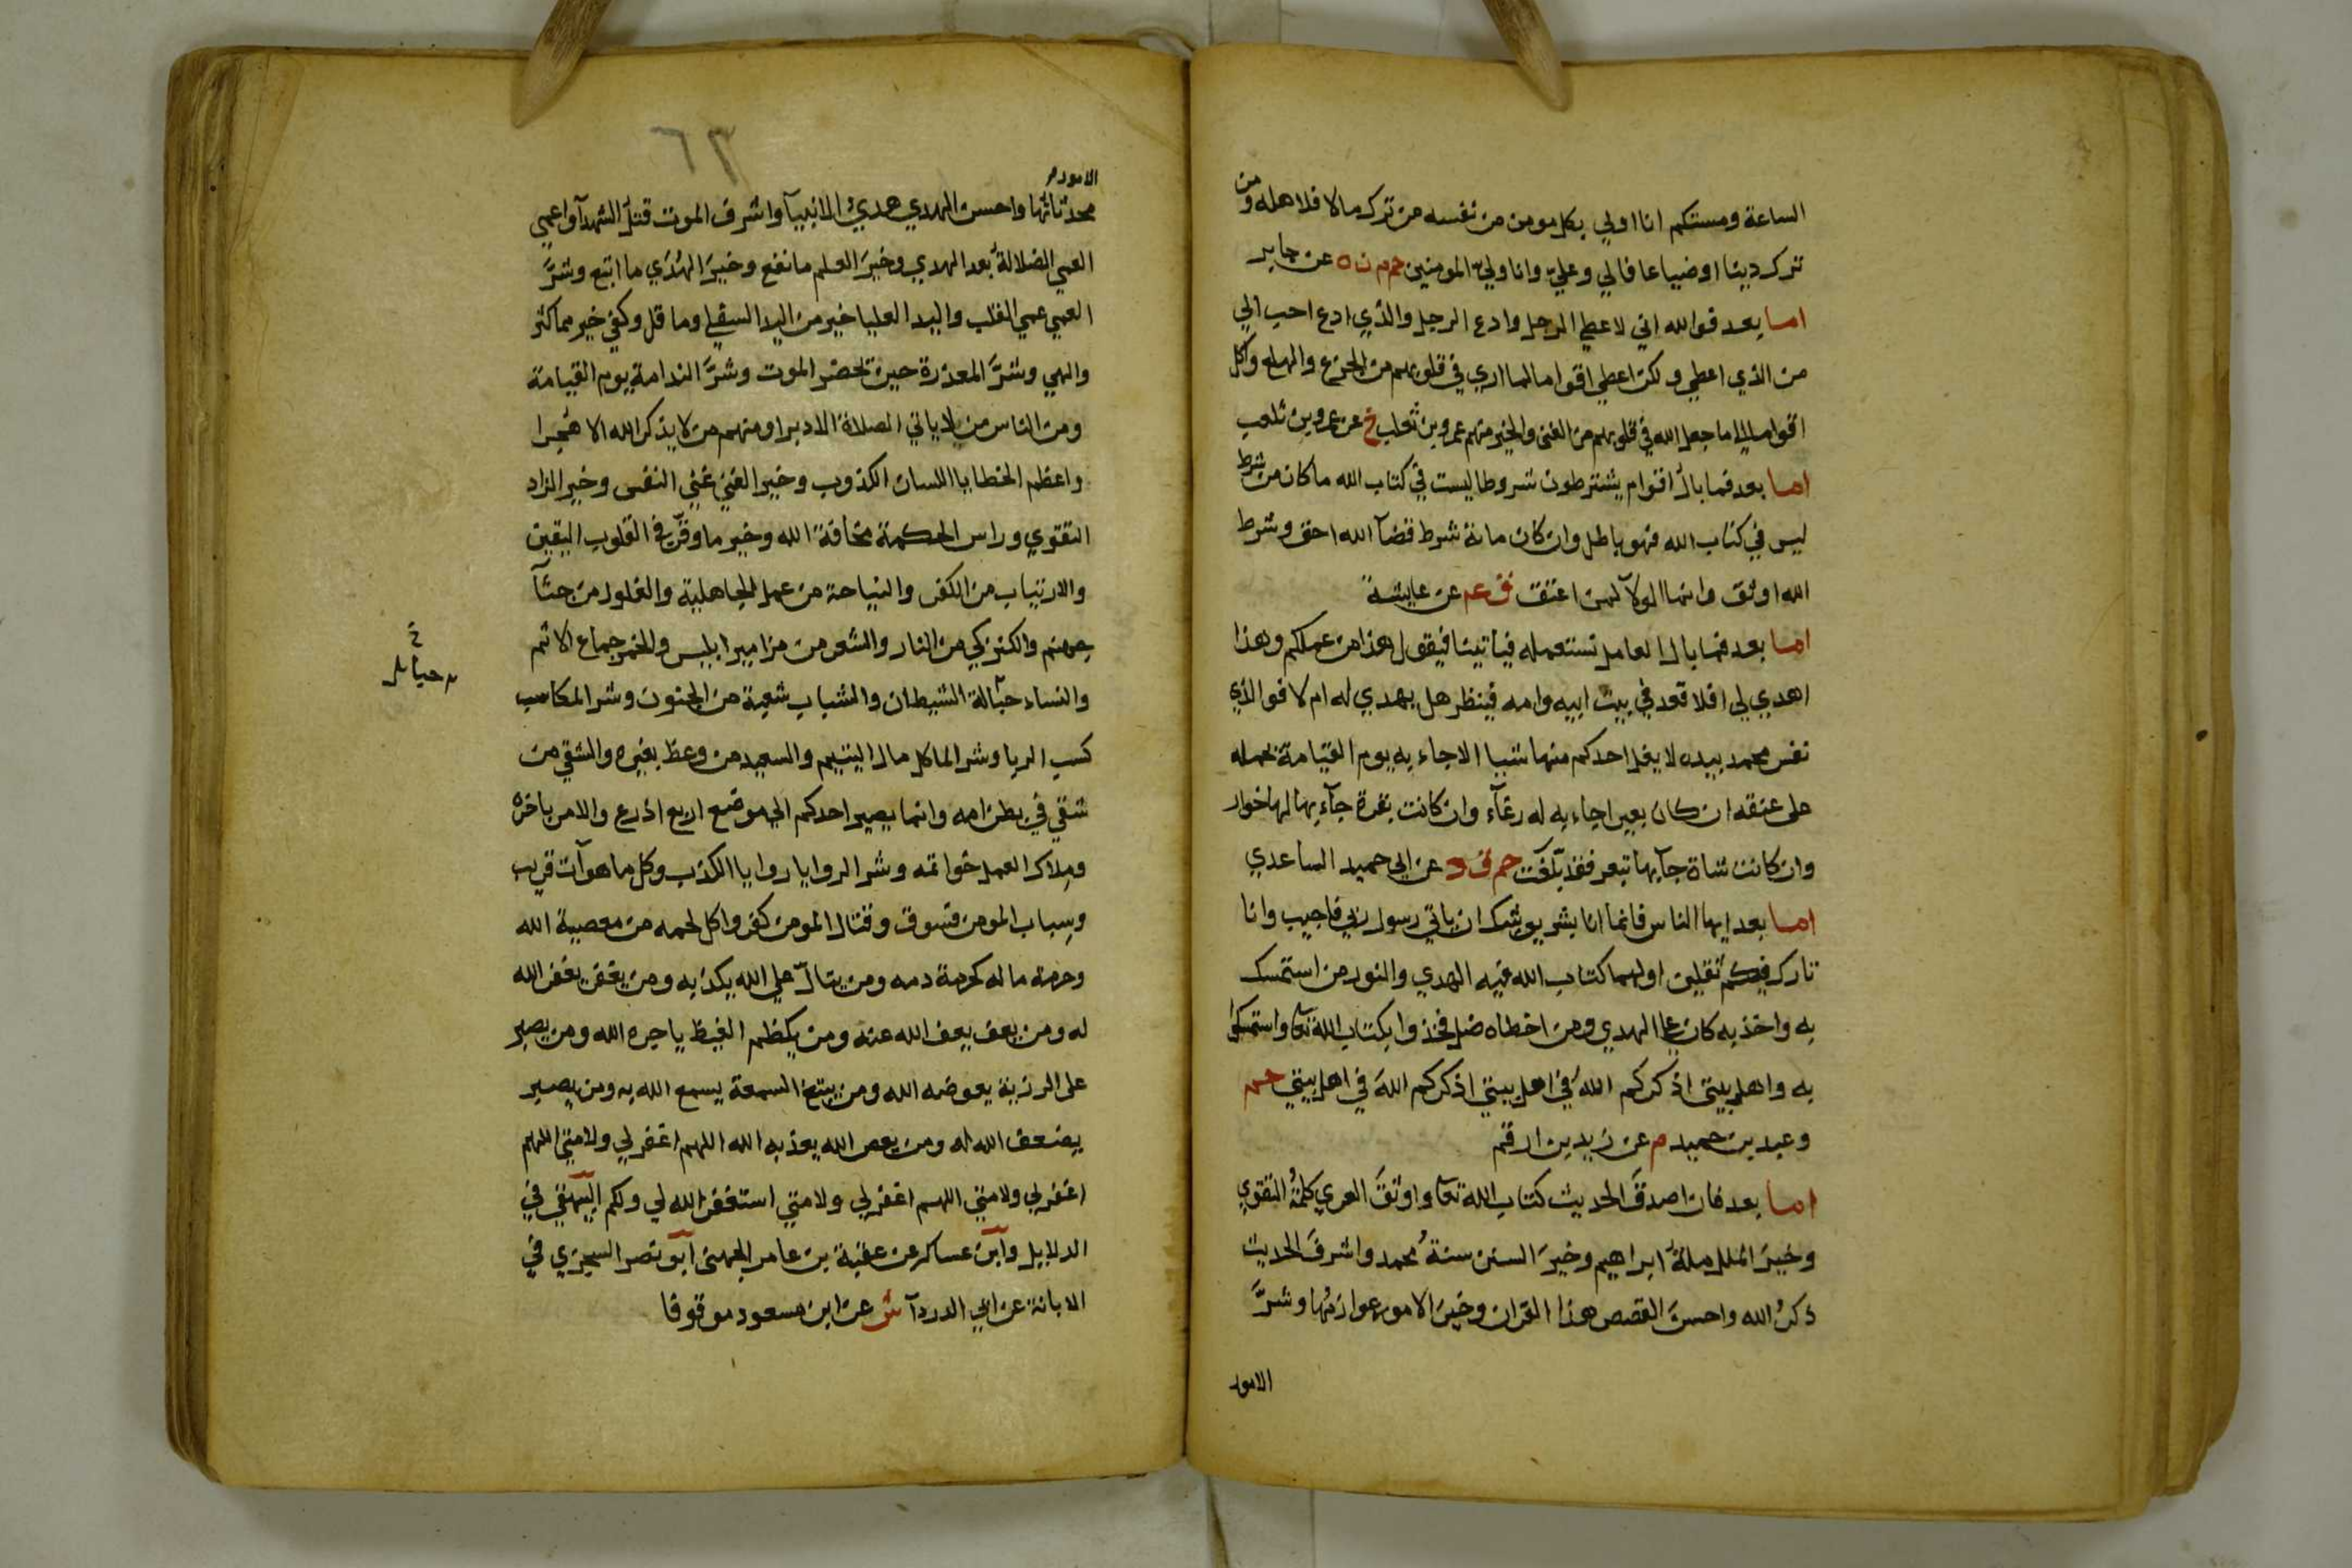 الساعة ومستكم انا اولي بكل مومن من نفسه من ترك مالا فلاهله ومن
ترك دينا او ضياعا فالي وعليّ وانا وليّ المومنين حم م ن ه عن جابر
اما بعد فوالله اني لاعطي الرجل وادع الرجل والذي ادع احب الي
من الذي اعطي ولكن اعطي اقواما لما اري في قلوبهم من الجزع والهلع واكل
اقواما الي ما جعل الله في قلوبهم من الغني والخير منهم عمرو بن تغلب خ عن عمرو بن تغلب
اما بعد فما بال اقوام يشترطون شروطا ليست في كتاب الله ما كان من شرط
ليس في كتاب الله فهو باطل وان كان مائة شرط قضآ الله احق وشرط
الله اوثق وانما الولآ لمن اعتق ق عم عن عايشة
اما بعد فما بال العامل نستعمله فياتينا فيقول هذا من عملكم وهذا
اهدي لي افلا قعد في بيت ابيه وامه فينظر هل يهدي له ام لا فوالذي
نفس محمد بيده لا يغل احدكم منها شيا الا جاء به يوم القيامة يحمله
على عنقه ان كان بعيرا جاء به له رغآء وان كانت بقرة جآء بها لها خوار
وان كانت شاة جآ بها تيعر فقد بلّغت حم ق د عن ابي حميد الساعدي
اما بعد ايها الناس فانما انا بشر يوشك ان ياتي رسول ربي فاجيب وانا
تارك فيكم ثقلين اولهما كتاب الله فيه الهدي والنور من استمسك
به واخذ به كان علي الهدي ومن اخطاه ضل فخذوا بكتاب الله تعا واستمسكوا
به واهل بيتي اذكركم الله في اهل بيتي اذكركم الله في اهل بيتي حم
وعبد بن حميد م عن زيد بن ارقم
اما بعد فان اصدقَ الحديث كتاب الله تعا واوثقَ العري كلمةُ التقوي
وخيرَ الملل ملةُ ابراهيم وخيرَ السنن سنةُ محمد واشرفَ الحديث
ذكرُ الله واحسنَ القصص هذا القران وخيرَ الامور عوازمُها وشرَّ
الامور
٦٣
الامور
محدثاتها واحسن الهدي هديُ الانبيآ واشرف الموت قتل الشهدآ واعمي
العمي الضلالةُ بعد الهدي وخيرَ العلم ما نفع وخيرَ الهُدَي ما اتبع وشرَّ
العمي عمي القلب واليد العليا خير من اليد السفلي وما قل وكفي خير مما كثر
والهي وشرَّ المعذرة حين يحضر الموت وشرَّ الندامة يوم القيامة
ومن الناس من لا ياتي الصلاة الا دبرا ومنهم من لا يذكر الله الا هجرا
واعظم الخطايا اللسان الكذوب وخير الغني غني النفس وخير الزاد
التقوي وراس الحكمة مخافة الله وخير ما وقر في القلوب اليقين
والارتياب من الكفر والنياحة من عمل الجاهلية والغلول من جثآ
جهنم والكنز كي من النار والشعر من مزامير ابليس والخمر جماع الاثم
والنساء حبالة الشيطان والشباب شعبة من الجنون وشر المكاسب
حبايل
كسب الربا وشر الماكل مال اليتيم والسعيد من وعظ بغيره والشقي من
شقي في بطن امه وانما يصير احدكم الي موضع اربع اذرع والامر باخره
وملاك العمل خواتمه وشر الروايا روايا الكذب وكل ما هو آت قريب
وسباب المومن فسوق وقتال المومن كفر واكل لحمه من معصية الله
وحرمة ماله كحرمة دمه ومن يتالّ علي الله يكذبه ومن يغفر يغفر الله
له ومن يعف يعف الله عنه ومن يكظم الغيظ ياجره الله ومن يصبر
على الرزية يعوضه الله ومن يبتغ السمعة يسمع الله به ومن يصبر
يضعف الله له ومن يعص الله يعذبه الله اللهم اغفر لي ولامتي اللهم
اغفر لي ولامتي اللهم اغفر لي ولامتي استغفر الله لي ولكم البيهقي في
الدلايل وابن عساكر عن عقبة بن عامر الجهني ابو نصر السجزي في
الابانة عن ابي الدردآ ش عن ابن مسعود موقوفا